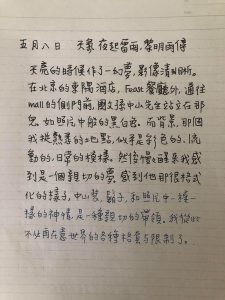 五月八日 天氣 夜起雷雨,黎明雨停
天亮的時候作了一幻夢,影像清晰。
在北京的東隅酒店, Feast 餐廳外,通往
mall 的側門前,國父孫中山先生站立在那
兒,如照片中般的黑白容。而背景,那個
我挺熟悉的地點,似乎是彩色的、流
動的,日常的模樣。然後慢慢醒來我感
到是一個親切的夢,感到他那很格式
化的樣子,中山裝、鬍子,和照片中一模一
樣的神情,是一種親切的帶領,我從此
不必用在意世界的各種格套與限制了。